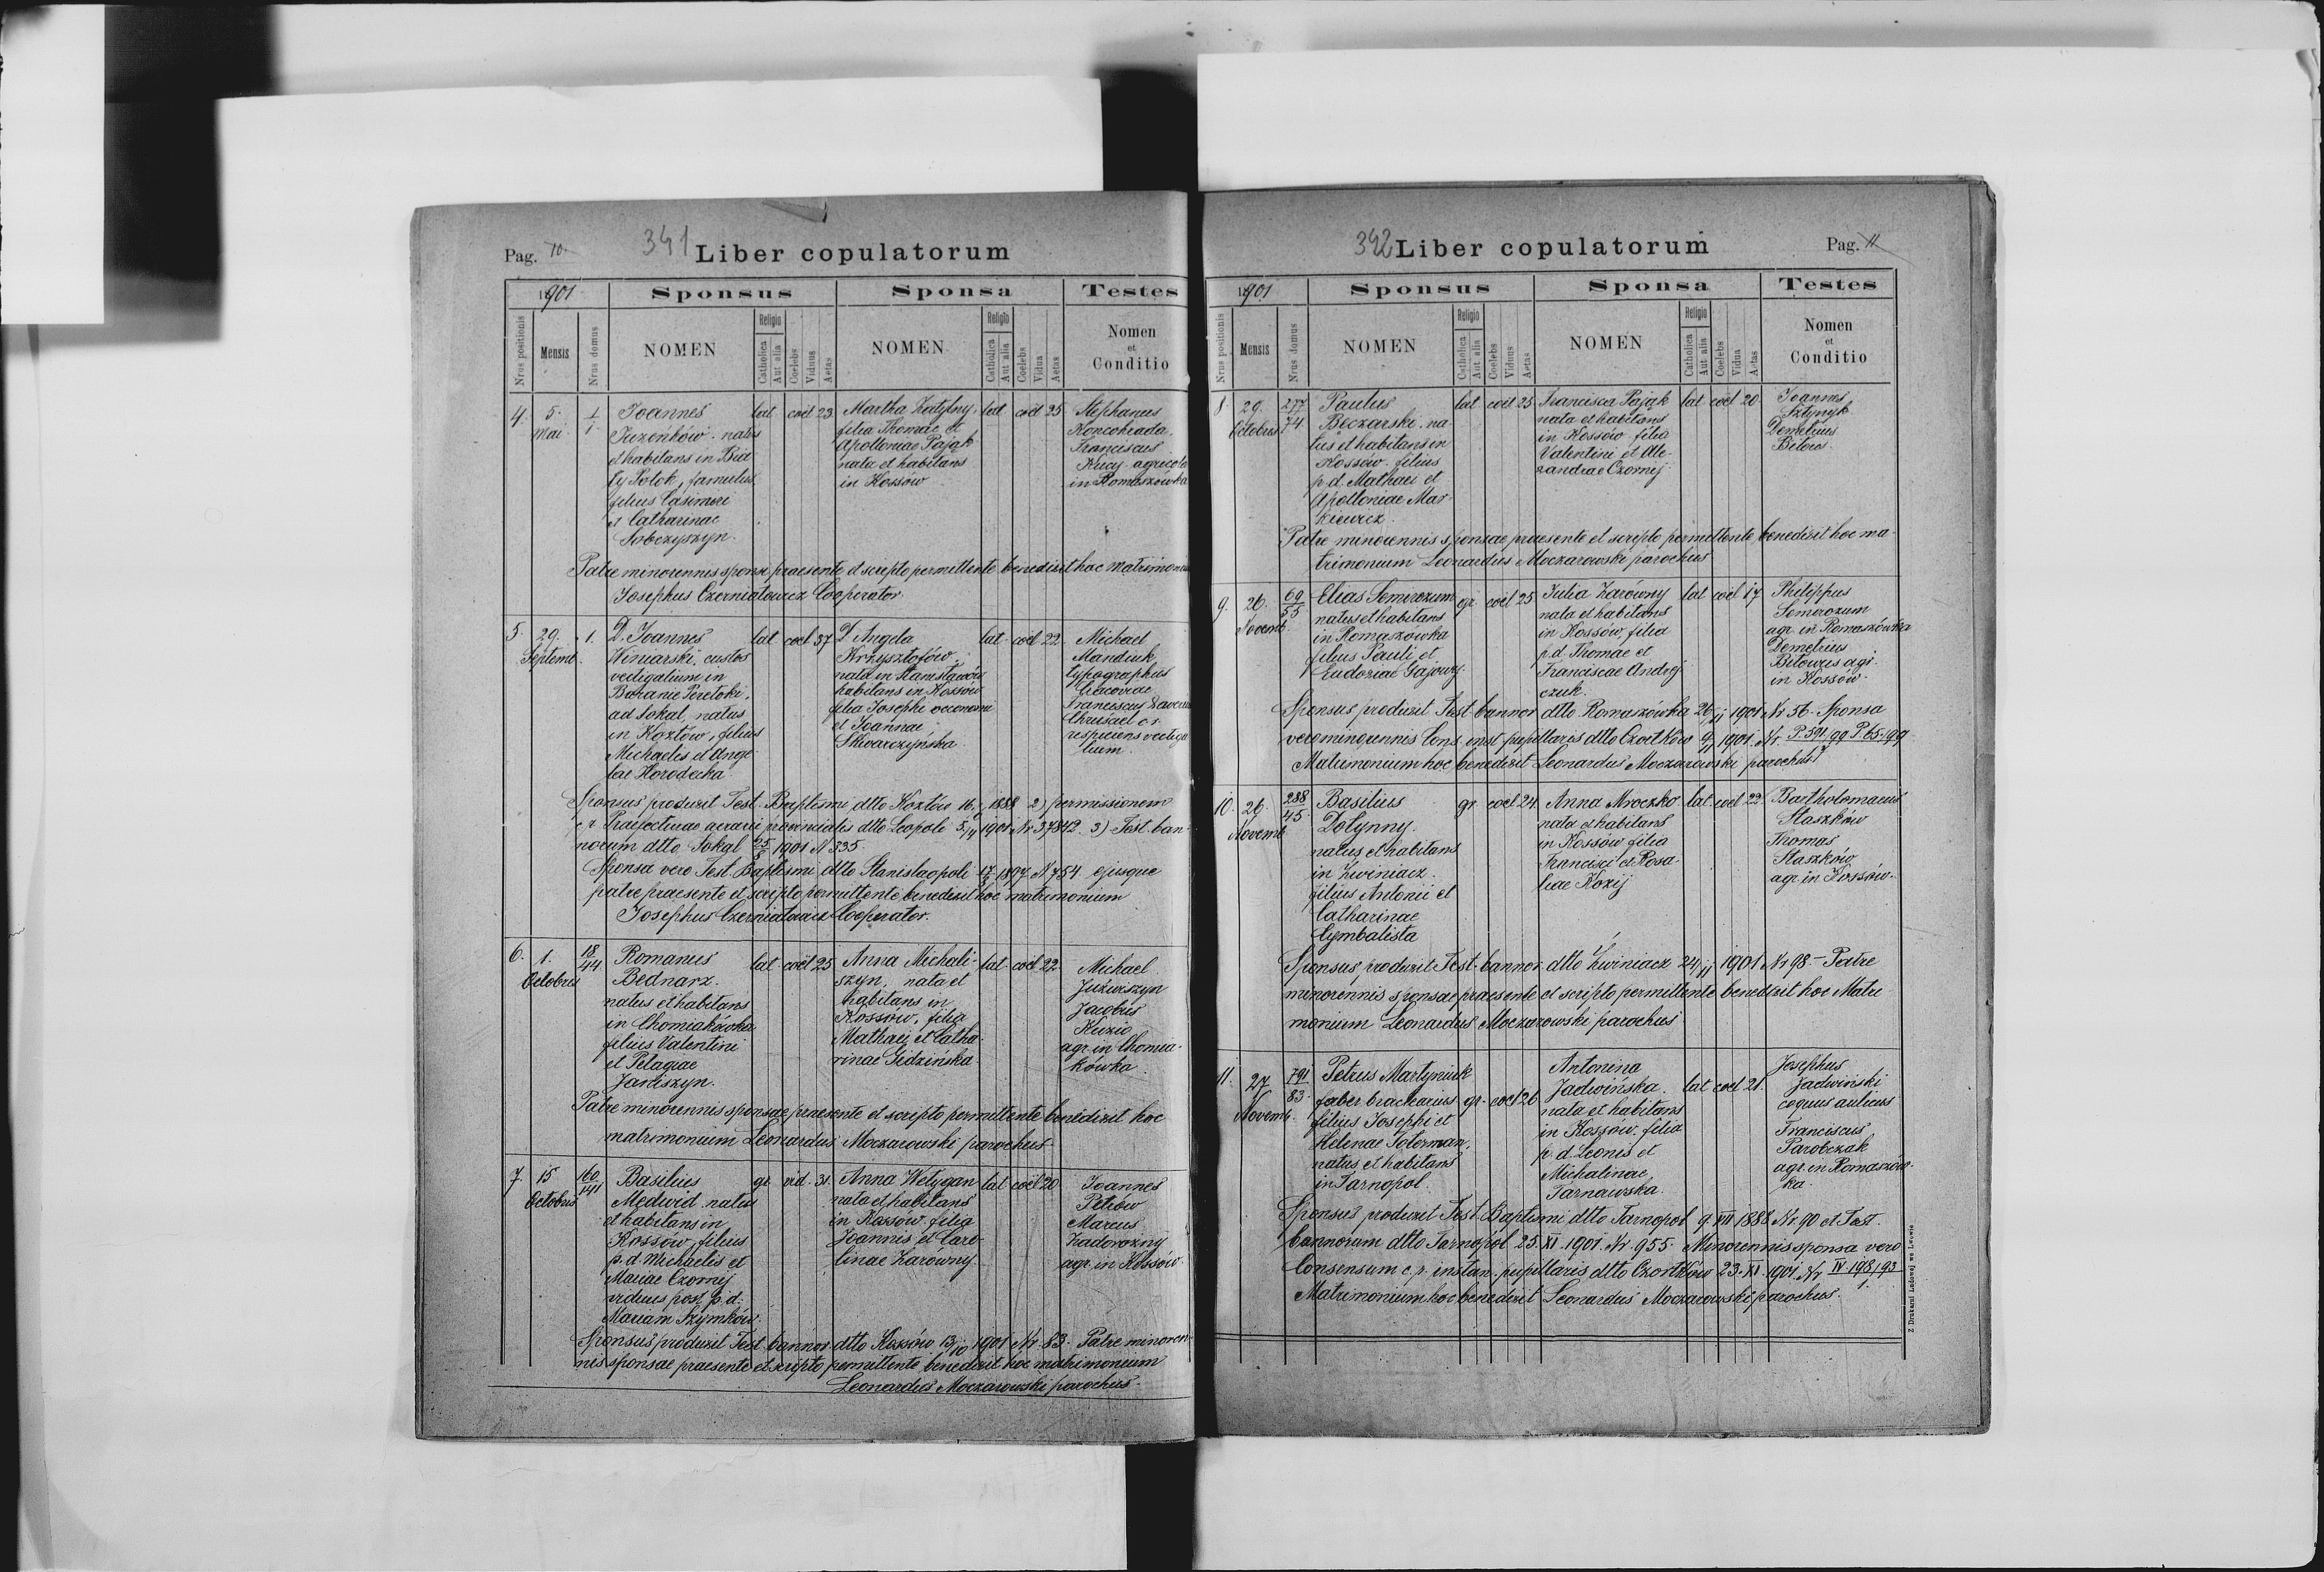 Pag. 10.
341
Liber copulatorum
1901
Sponsus
Sponsa
Testes
Nrus positionis
Mensis
Nrus domus
NOMEN
Religio
Catholica
Aut alia
Coelebs
Viduus
Aetas
NOMEN
Religio
Catholica
Aut alia
Coelebs
Vidua
Aetas
Nomen
et
Conditio
4. 5. Mai 1/1
Joannes
natus
et habitans in Bia
ły Potok, famulus
filius Casimiri
et Catharinae
Sobczyszyn.
lat. coel 23
Martha
filia Thomae et
Apolloniae Pająk
nata et habitans
in Kossów
lat coel 25
Stephanus
Franciscus
agricola
in Romaszówka
Patre minorennis sponsi praesente et scripto permittente benedixit hoc matrimonium
Josephus Czerniatowicz Cooperator.
5. 29. Septemb. 1.
D. Joannes
Winiarski, custos
vectigalium in
Baranie Peretoki,
ad Sokal, natus
in Kozłów, filius
Michaelis et Ange
lae Horodecka
lat coel 37
D. Angela
Krzysztofów,
nata in Stanisławów
habitans in Kossów
filia Josephi oeconomi
et Joannae
Skwarczyńska
lat. coel 22
Michael
Mandiuk
typographus
Cracoviae
Franciscus
respiciens vectiga
lium.
Sponsus produxit Test. Baptismi dtto Kozłów 1888 2) permissionem
c. r. Praefecturae aerarii provincialis dtto Leopoli 1901 Nr 37842. 3) Test. ban
norum dtto Sokal 1901 N 335.
Sponsa vero Test. Baptismi dtto Stanislaopoli 1897 N 754 ejusque
patre praesente et scripto permittente benedixit hoc matrimonium
Josephus Czerniatowicz Cooperator.
6. 1. Octobris 18/44
Romanus
Bednarz.
natus et habitans
in Chomiakówka
filius Valentini
et Pelagiae
Janiszyn.
lat coel 25
Anna Michali-
szyn, nata et
habitans in
Kossów, filia
Mathaei et Catha
rinae Gidzińska.
lat. coel 22
Michael
Juzwiszyn
Jacobus
Kuzio
agr. in Chomia-
kówka
Patre minorennis sponsae praesente et scripto permittente benedixit hoc
matrimonium Leonardus Moczarowski parochus.
7. 15 Octobris 160/141
Basilius
Medwid natus
et habitans in
Kossów, filius
p. d. Michaelis et
Mariae Czornij
viduus post p. d.
Mariam Szymków.
gr. vid. 31.
Anna Wetygan
nata et habitans
in Kossów filia
Joannis et Caro
linae Zarówny.
lat coel 20
Joannes
Petrów
Marcus
Zadorozny
agr. in Kossów.
Sponsus produxit Test bannor dtto Kossów 13/10 1901 Nr. 83. Patre minoren
nis sponsae praesente et scripto permittente benedixit hoc matrimonium
Leonardus Moczarowski parochus.
392
Liber copulatorum
Pag. 11
1901
Sponsus
Sponsa
Testes
Nrus positionis
Mensis
Nrus domus
NOMEN
Religio
Catholica
Aut alia
Coelebs
Viduus
Aetas
NOMEN
Religio
Catholica
Aut alia
Coelebs
Vidua
Aetas
Nomen
et
Conditio
8. 29. Octobris 277/74
Paulus
Beczarski. na
tus et habitans in
Kossów. filius
p. d. Mathaei et
Apolloniae Mar
kiewicz.
lat coel 25
Francisca Pająk
nata et habitans
in Kossów filia
Valentini et Ale-
xandrae Czornij
lat. coel 20
Joannes
Demetrius
Bitows.
Patre minorennis sponsae praesente et scripto permittente benedixit hoc ma
trimonium Leonardus Moczarowski parochus
9. 26. Novemb. 69/55
Elias Semerozum
natus et habitans
in Romaszówka
filius Pauli et
Eudoxiae Gajowy.
gr. coel 25
Julia Zarówny
nata et habitans
in Kossów, filia
p. d. Thomae et
Franciscae Andrej
czuk.
lat coel 17
Philippus
Semerozum
agr. in Romaszówka
Demetrius
Bitowus agr.
in Kossów.
Sponsus produxit Test. bannor dtto Romaszówka 26/11 1901 Nr 56. Sponsa
vero minorennis Cons. inst. pupillaris dtto Czortków 9/11 1901. Nr.
Matrimonium hoc benedixit Leonardus Moczarowski parochus
10. 26. Novemb 288/45
Basilius
Dolynny.
natus et habitans
in Zwiniacz.
filius Antonii et
Catharinae
Cymbalista
gr. coel 24.
Anna Mroczko
nata et habitans
in Kossów filia
Francisci et Rosa
liae Kozij
lat. coel 22
Bartholomaeus
Staszków
Thomas
Staszków
agr. in Kossów.
Sponsus produxit Test. bannor. dtto Zwiniacz 24/11 1901 Nr 98. - Patre
minorennis sponsae praesente et scripto permittente benedixit hoc Matri
monium Leonardus Moczarowski parochus
11. 27 Novemb. 791/83
Petrus Martyniuk
faber
filius Josephi et
Helenae Toterman,
natus et habitans
in Tarnopol.
gr. coel 26
Antonina
Jadwińska
nata et habitans
in Kossów. filia
p. d. Leonis et
Michalinae,
Tarnawska.
lat coel 21.
Josephus
Jadwiński
coquus aulicus
Franciscus
Parobczak
agr. in Romaszów-
ka.
Sponsus produxit Test. Baptismi dtto Tarnopol 9. XII 1888 Nr. 90 et Test.
bannorum dtto Tarnopol 25. XI. 1901. Nr. 955. Minorennis sponsa vero
Consensum c. r. instan. pupillaris dtto Czortków 23. XI. 1901. Nr IV 198/93
1.
Matrimonium hoc benedixit Leonardus Moczarowski parochus.
Z Drukarni Ludowej we Lwowie